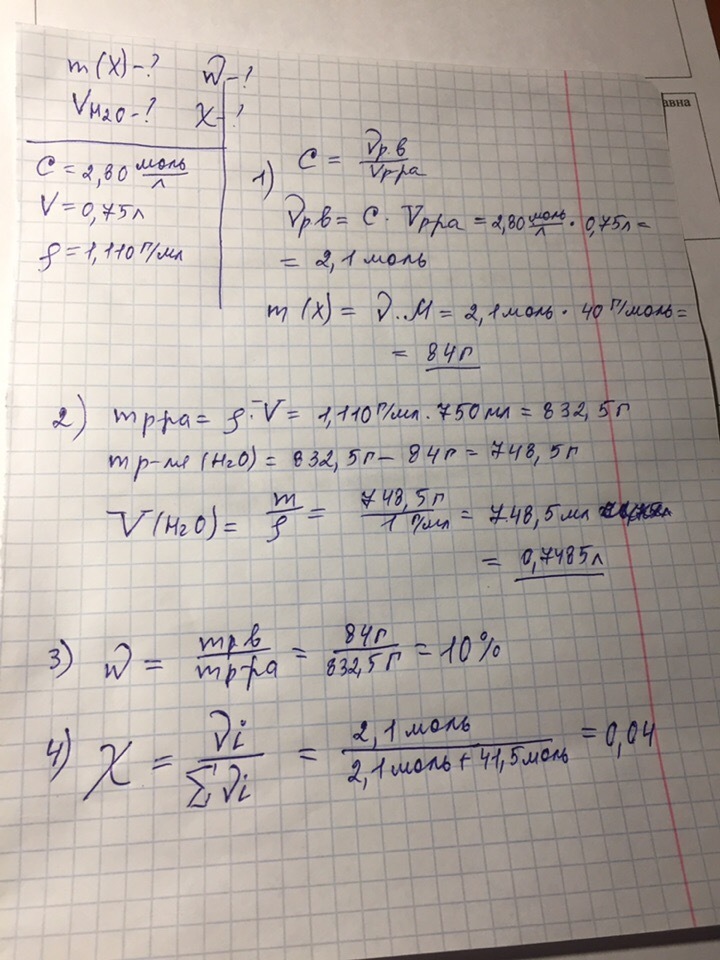 m(X)-? W-?
VH2O-? χ-?
C = 2,80 моль/л
V = 0,75л
ρ = 1,110 г/мл
1) C = νр.в / Vрра
νрв = C · Vрра = 2,80 моль/л · 0,75л =
= 2,1 моль
m(X) = ν·M = 2,1моль · 40 г/моль =
= 84г
2) mрра = ρ·V = 1,110 г/мл · 750 мл = 832,5г
mр-ля (H2O) = 832,5г - 84г = 748,5г
V(H2O) = m/ρ = 748,5г / 1 г/мл = 748,5мл
= 0,7485л
3) W = mрв / mр-ра = 84г / 832,5г = 10%
4) χ = νi / Σνi = 2,1моль / 2,1моль + 41,5моль = 0,04
авна